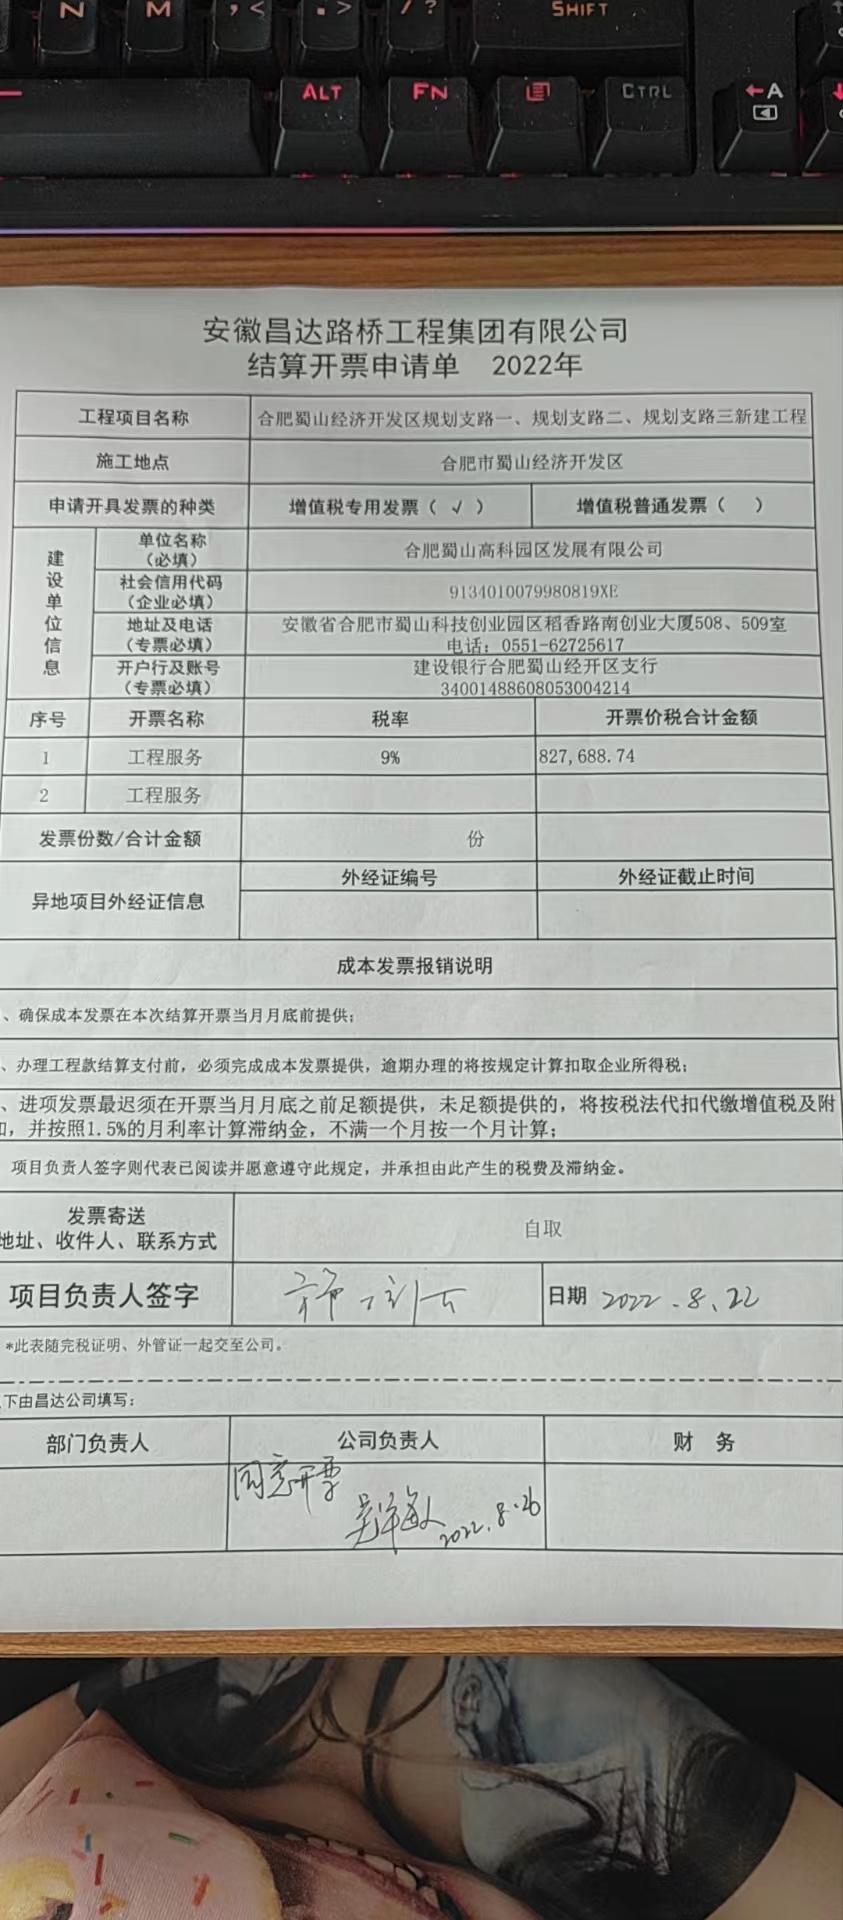 N M , < . > / ? SHIFT
ALT FN CTRL ←A
安徽昌达路桥工程集团有限公司
结算开票申请单 2022年
工程项目名称 合肥蜀山经济开发区规划支路一、规划支路二、规划支路三新建工程
施工地点 合肥市蜀山经济开发区
申请开具发票的种类 增值税专用发票（ √ ） 增值税普通发票（ ）
建设单位信息
单位名称
（必填） 合肥蜀山高科园区发展有限公司
社会信用代码
（企业必填） 9134010079980819XE
地址及电话 安徽省合肥市蜀山科技创业园区稻香路南创业大厦508、509室
（专票必填） 电话：0551-62725617
开户行及账号 建设银行合肥蜀山经开区支行
（专票必填） 34001488608053004214
序号 开票名称 税率 开票价税合计金额
1 工程服务 9% 827,688.74
2 工程服务
发票份数/合计金额 份
异地项目外经证信息 外经证编号 外经证截止时间
成本发票报销说明
、确保成本发票在本次结算开票当月月底前提供；
、办理工程款结算支付前，必须完成成本发票提供，逾期办理的将按规定计算扣取企业所得税；
、进项发票最迟须在开票当月月底之前足额提供，未足额提供的，将按税法代扣代缴增值税及附
，并按照1.5%的月利率计算滞纳金，不满一个月按一个月计算；
项目负责人签字则代表已阅读并愿意遵守此规定，并承担由此产生的税费及滞纳金。
发票寄送
地址、收件人、联系方式 自取
项目负责人签字 日期 2022.8.22
*此表随完税证明、外管证一起交至公司。
下由昌达公司填写：
部门负责人 公司负责人 财 务
同意开票
2022.8.26